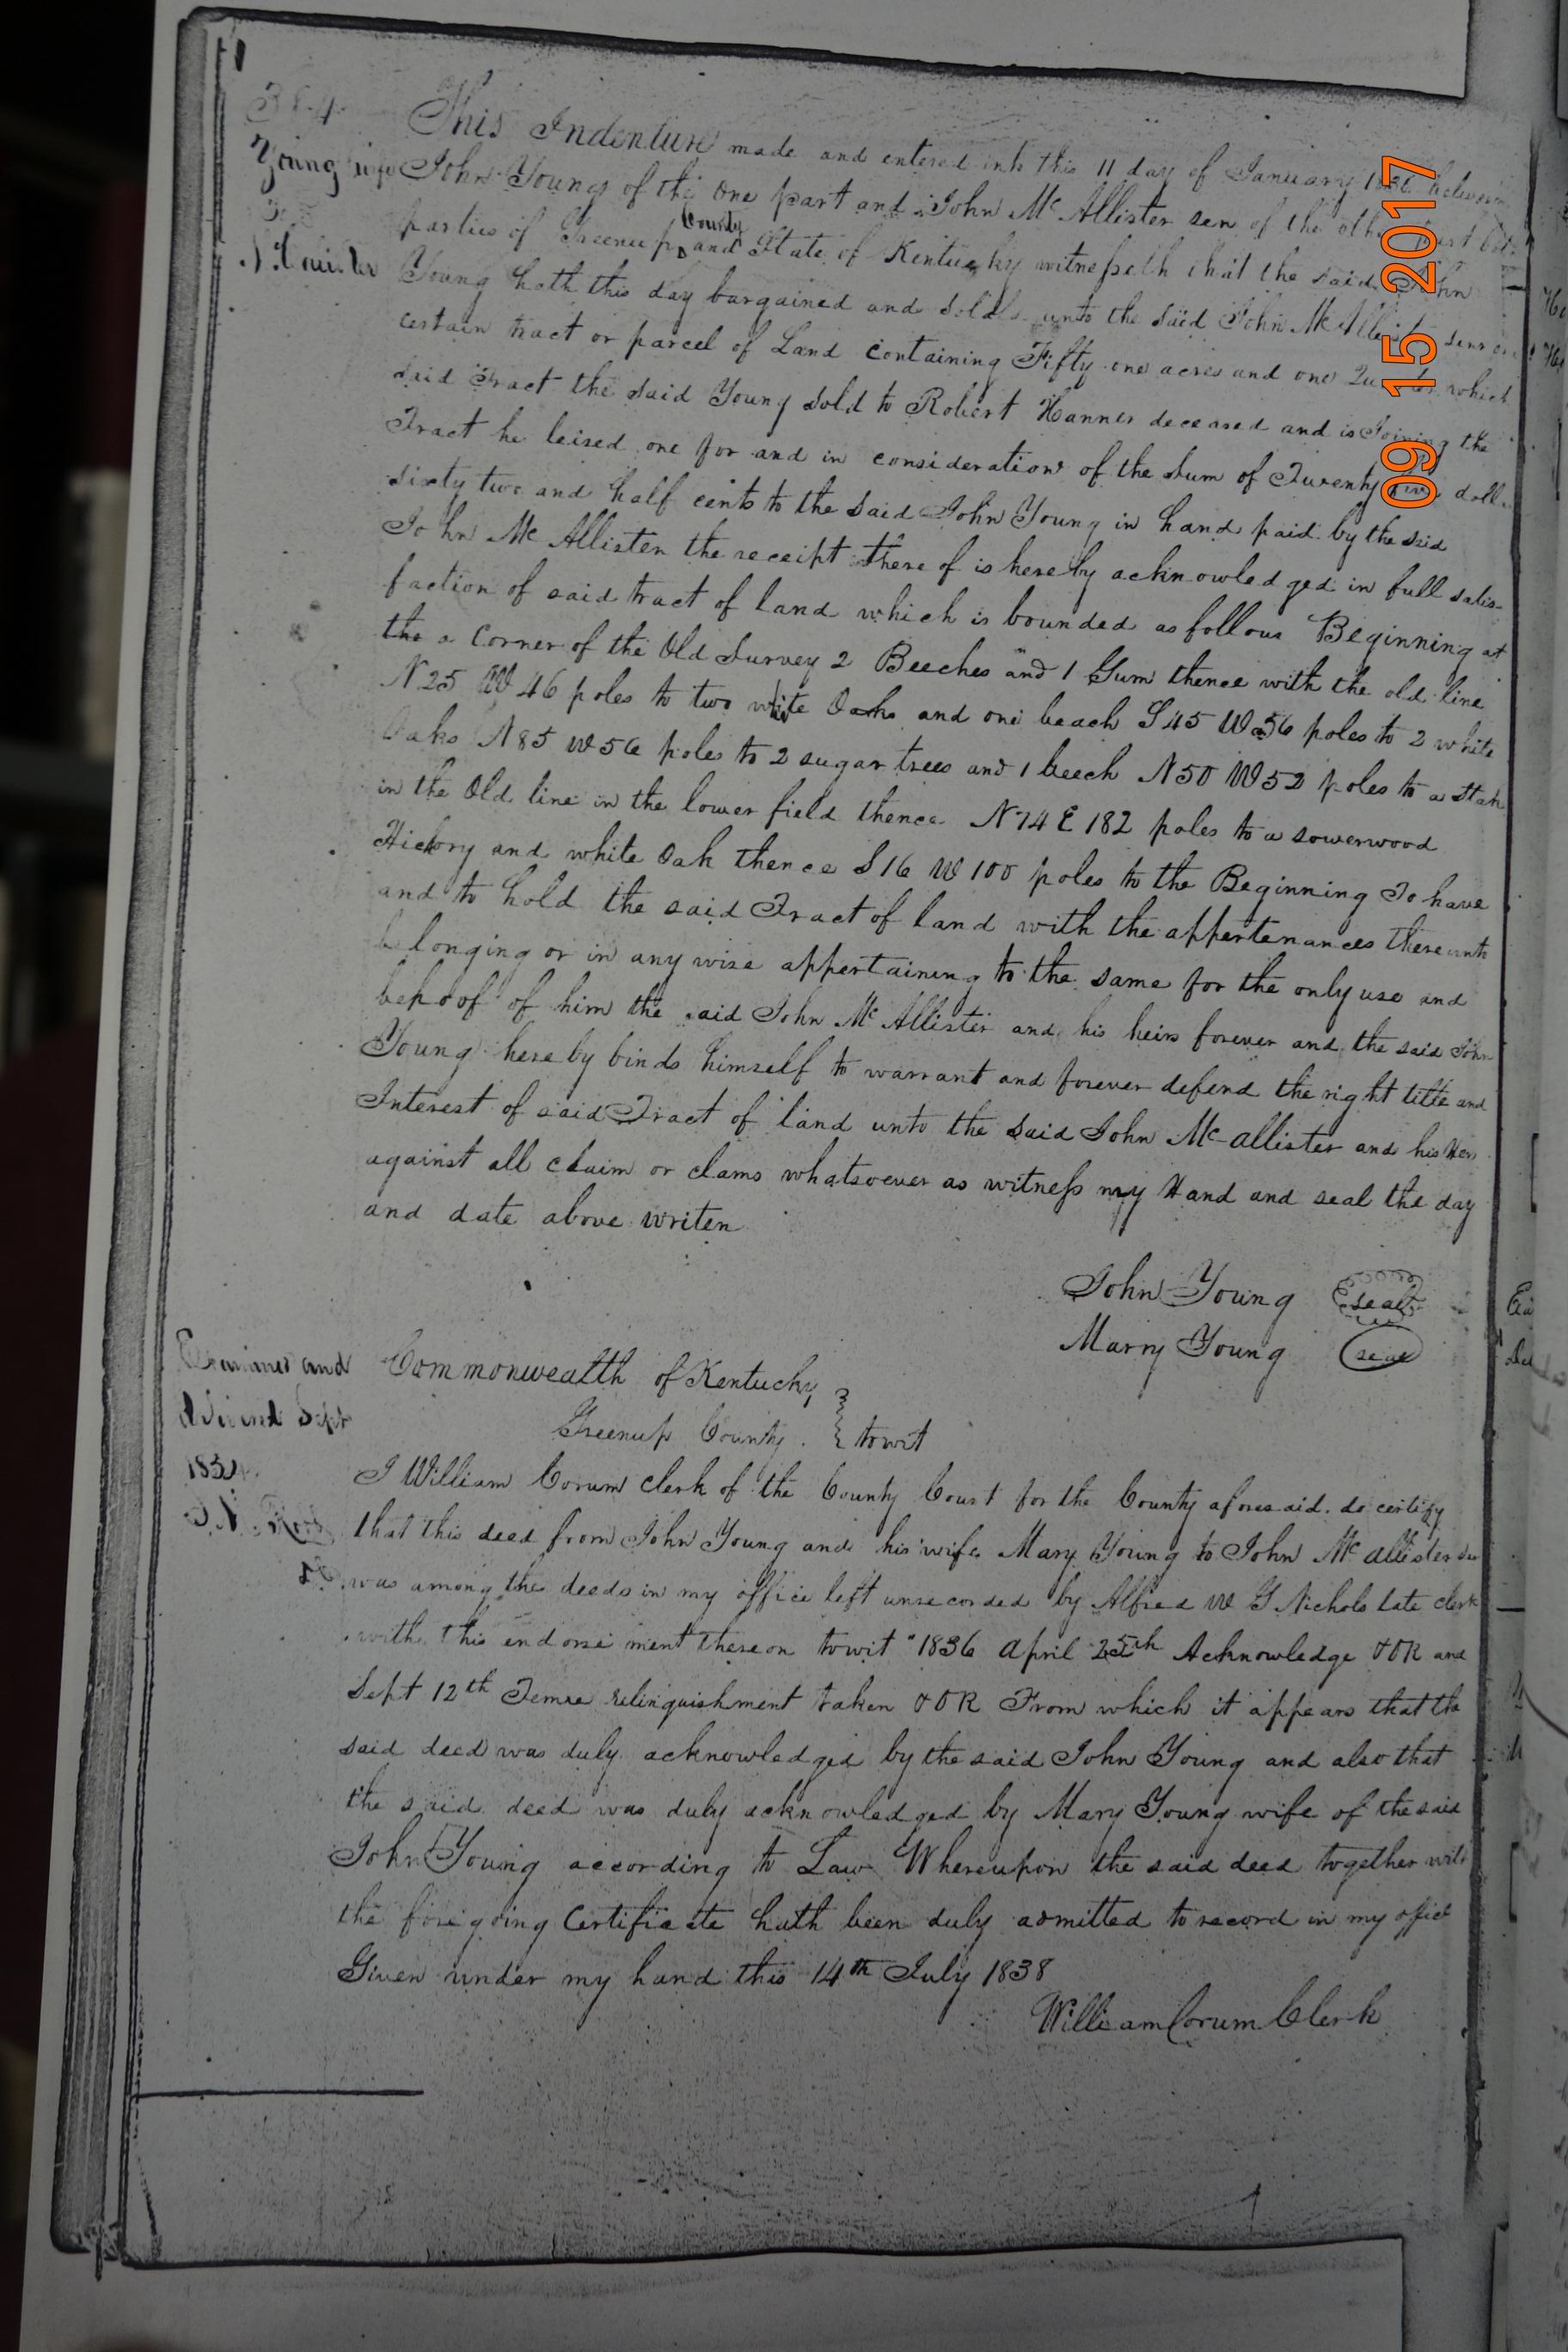 384
This Indenture made and entered into this 11 day of January between
Young wife John Young of the one part and John Mc Allister sen of the other part
parties of Greenup County and State of Kentucky witnesseth that the said John
Young hath this day bargained and sold unto the said John Mc Allister senr
certain tract or parcel of Land containing Fifty one acres and one which
said Tract the said Young sold to Robert Hanner deceased and is Joining the
Tract he leised one for and in consideration of the Sum of Twenty five doll
sixty two and half cents to the said John Young in hand paid by the said
John Mc Allister the receipt there of is hereby acknowledged in full satis-
faction of said tract of land which is bounded as follows Beginning at
the a Corner of the Old Survey 2 Beeches and 1 Gum thence with the old line
N 25 W 46 poles to two white Oaks and one beach S 45 W 56 poles to 2 white
Oaks N 85 W 56 poles to 2 sugar trees and 1 beech N 50 W 52 poles to a stak
in the Old line in the lower field thence N 74 E 182 poles to a sowerwood
Hickory and white Oak thence S 16 W 100 poles to the Beginning To have
and to hold the said Tract of land with the appertenances thereunto
belonging or in any wise appertaining to the same for the only use and
behoof of him the said John Mc Allister and his heirs forever and the said John
Young hereby binds himself to warrant and forever defend the right title and
Interest of said Tract of land unto the said John Mc allister and his Heirs
against all claim or clams whatsoever as witness my Hand and seal the day
and date above writen
John Young seal
Marry Young seal
Examined and
Sept
Commonwealth of Kentucky
Greenup County } towit
I William Corum clerk of the County Court for the County aforesaid do certify
that this deed from John Young and his wife Mary Young to John Mc allister sen
was among the deeds in my office left unrecorded by Alfred W G Nichols late clerk
with this endorsement thereon towit "1836 April 25th Acknowledge & OR and
Sept 12th Femme relinquishment taken & OR From which it appears that the
said deed was duly acknowledged by the said John Young and also that
the said deed was duly acknowledged by Mary Young wife of the said
John Young according to Law Whereupon the said deed together with
the foregoing Certificate hath been duly admitted to record in my office
Given under my hand this 14th July 1838
William Corum Clerk
09 15 2017